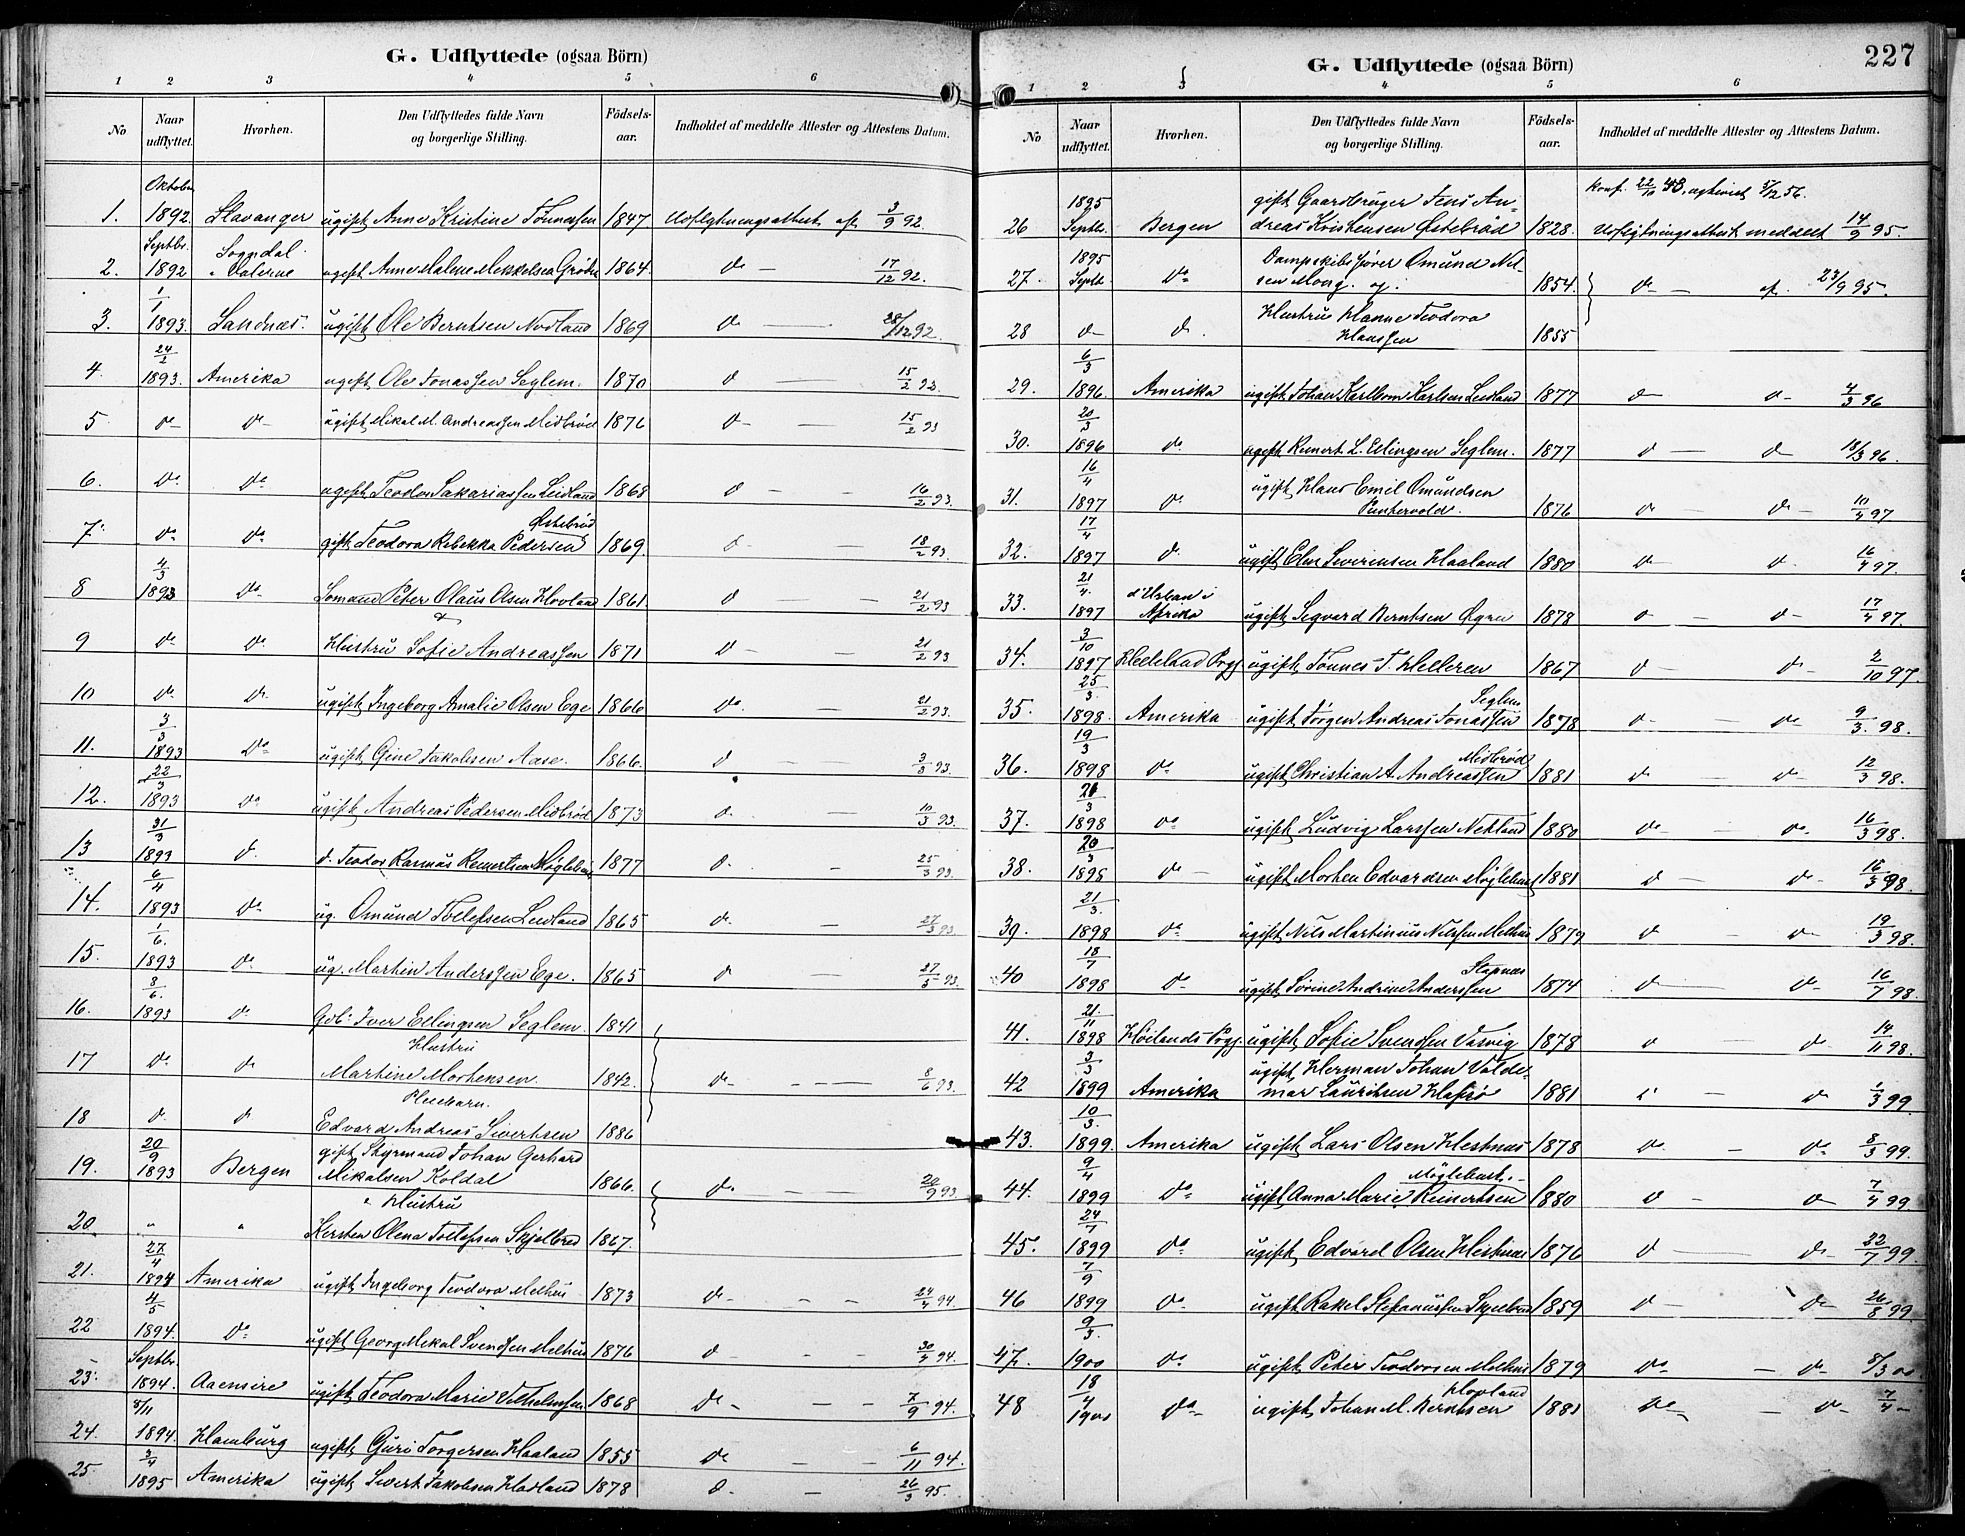 G. Udflyttede (ogsaa Börn)
1 2 3 4 5 6
No Naar udflyttet. Hvorhen. Den Udflyttedes fulde Navn og borgerlige Stilling. Födselsaar. Indholdet af meddelte Attester og Attestens Datum.
1. Oktober 1892 Stavanger ugift Anne Kristine Tönnessen 1847 Udflytningsattest af 3/9 92.
2. Septbr. 1892 Sogndal ugift Anne Malene Mikkelsen 1864. do — 17/12 92.
3. 1/1 1893. Sandnæs. ugift Ole Berntsen Nodland 1869 do — 28/12 92
4. 24/2 1893. Amerika ugift Ole Jonassen Seglem. 1870 do — 15/2 93.
5 do do ugift Mikal M. Andreassen Midbrød 1876 do — 15/2 93
6. do do ugift Teodor Sakariassen Leidland 1868 do — 16/2 93.
7. do do gift Teodora Rebekka Pedersen Østebrød 1869. do — 18/2 93.
8 4/3 1893 do Sømand Peter Olaus Olsen Hovland & 1861 do — 21/2 93
9 do do Hustru Sofie Andreassen 1871 do — 21/2 93
10 do do ugift Ingeborg Amalie Olsen Ege 1866 do — 21/2 93.
11. 3/3 1893 do ugift Gine Jakobsen Aase. 1866. do — 3/3 93.
12. 22/3 1893 do ugift Andreas Pedersen Midbrød 1873 do — 10/3 93.
13 31/3 1893 do d. Teodor Rasmus Reinertsen Møglebust 1877 do — 25/3 93.
14. 6/4 1893 do ug. Omund Tollefsen Leidland 1865 do — 27/3 93
15. 1/6. 1893 do ug. Martin Anderssen Ege. 1865 do — 27/5 93.
16. 8/6. 1893 do Gbr. Iver Ellingsen Seglem. 1841
17 do do Hustru Martine Mortensen. 1842. do — 8/6 93.
18 do do Pleiebarn. Edvard Andreas Sivertsen 1886
19. 20/9 1893 Bergen gift Styrmand Johan Gerhard Mikalsen Koldal 1866. do — 20/9 93
20 " " " Hustru Kirsten Olena Tollefsen Skjelbred 1867.
21. 27/4 1894 Amerika ugift Ingeborg Teodora Melhus 1873 do — 24/4 94.
22 4/5 1894. do ugift Georg Mikal Svendsen Melhus 1876 do — 30/4 94.
23. Septbr. 1894. Aaensire ugift Teodora Marie Vilhelmsen 1868 do — 7/9 94.
24. 8/11 1894. Hamburg ugift Guri Torgersen Haaland 1855 do — 6/11 94.
25 3/4 1895 Amerika ugift Sivert Jakobsen Haaland 1878 do — 26/3 95.
227
G. Udflyttede (ogsaa Börn)
1 2 3 4 5 6
No Naar udflyttet. Hvorhen. Den Udflyttedes fulde Navn og borgerlige Stilling. Födselsaar. Indholdet af meddelte Attester og Attestens Datum.
26 1895 Septbr. Bergen gift Gaardbruger Jens Andreas Kristensen Østebrød 1828. Konf. 22/10 43, egteviet 5/12 56. Udflytningsattest meddelt 14/9 95.
27. 1895 Septb. do Dampskibsfører Omund Nilsen Mong. og. 1854. do — af. 23/9 95.
28 do do Hustru Hanne Teodora Hanssen 1855
29. 6/3 1896. Amerika ugift Johan Karlbom Karlsen Leidland 1877 do do 4/3 96
30. 20/3 1896 do ugift Reinert L. Ellingsen Seglem. 1877 do do 18/3 96.
31. 16/4 1897 do ugift Hans Emil Omundsen Puntervold. 1876 do do 10/4 97
32. 17/4 1897 do ugift Elen Severinsen Haaland 1880 do do 16/4 97.
33. 21/4. 1897 d'Urban i Afrika ugift Segvard Berntsen Øgre 1878 do do 17/4 97.
34. 3/10 1897 Hetland Prgj ugift Tönnes T. Helleren 1867 do do 2/10 97.
35. 25/3. 1898. Amerika ugift Jörgen Andreas Jonassen Seglem 1878 do do 9/3. 98.
36. 19/3 1898 do ugift Christian A. Andreassen Midbrød 1881 do do 12/3 98.
37. 26/3 1898 do ugift Ludvig Larssen Netland 1880 do do 16/3 98.
38. 26/3 1898 do ugift Morten Edvardsen Møglebust 1881 do do 16/3 98.
39. 21/3. 1898 do ugift Nils Martinius Nilssen Melhus 1879 do do 19/3 98.
40 18/7 1898 do ugift Sörine Andrine Anderssen Stapnæs 1874 do do 16/7 98.
41. 21/11 1898 Høilands Prgj. ugift Sofie Svendsen Vasvig 1878 do do 14/11 98.
42 3/3 1899 Amerika ugift Herman Johan Valdemar Lauritsen Hafsø 1881 do do 1/3 99.
43. 10/3. 1899. Amerika ugift Lars Olsen Hestnæs 1878 do do 8/3 99.
44. 9/4 1899 do ugift Anna Marie Reinertsen Møglebust 1880 do do 7/4 99.
45. 24/7 1899 do ugift Edvard Olsen Hestnæs 1876 do do 22/7 99.
46 7/9 1899 do ugift Rakel Stefanussen Skjelbred 1859 do do 26/8 99.
47. 9/3. 1900 do ugift Peter Teodorsen Melhus 1879 do do 8/3 00.
48 18/4 1900 do ugift Johan M. Berntsen Hovland 1881 do do 7/4 —